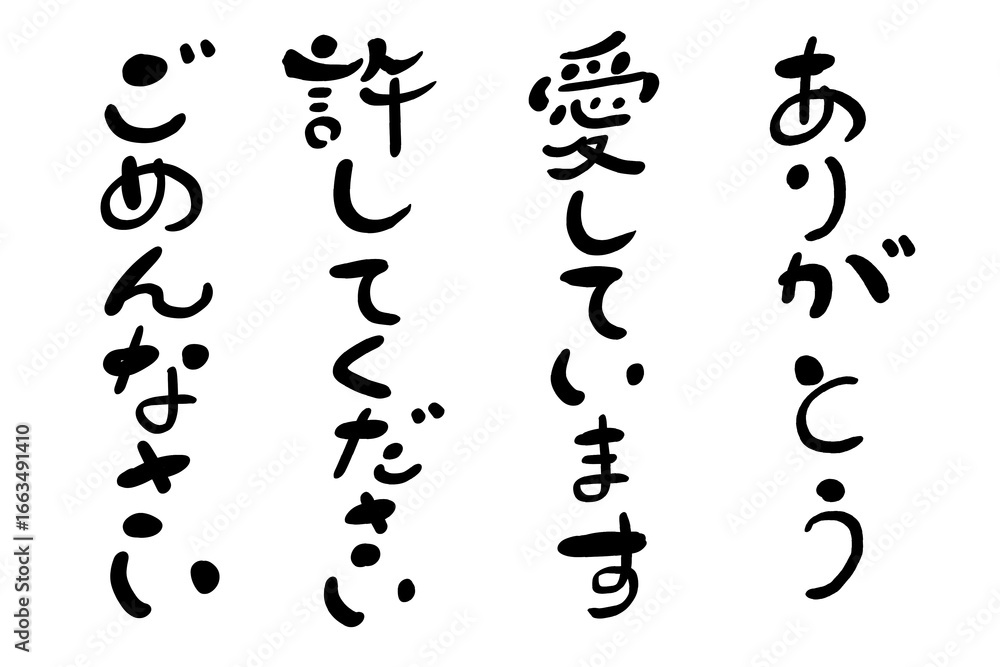 ありがとう
愛しています
許してください
ごめんなさい
Adobe Stock | #1663491410